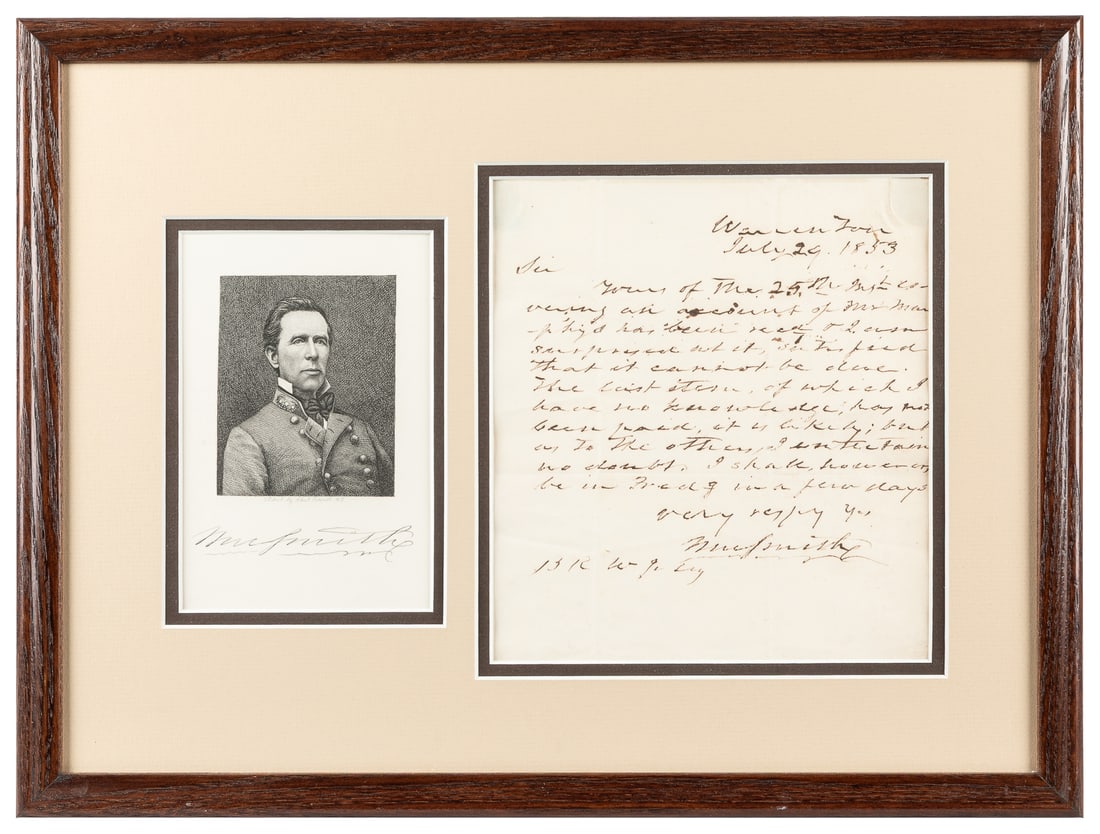 Wm Smith
Warrenton
July 29. 1853
Sir
Yours of the 25th Inst co-
vering an account of Mr Mur-
phy's has been recd & I am
surprised at it, satisfied
that it cannot be due.
The last item, of which I
have no knowledge, has not
been paid, it is likely; but
as to the others, I entertain
no doubt. I shall, however,
be in Fredg in a few days
very respy Yr
Wm Smith